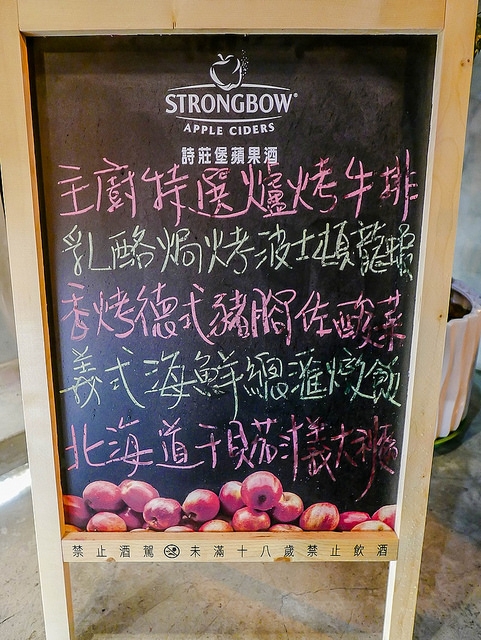 STRONGBOW®
APPLE CIDERS
詩莊堡蘋果酒
主廚特選爐烤牛排
乳酪焗烤波士頓龍蝦
香烤德式豬腳佐酸菜
義式海鮮總滙燉飯
北海道干貝茄汁義大利麵
禁止酒駕 未滿十八歲禁止飲酒